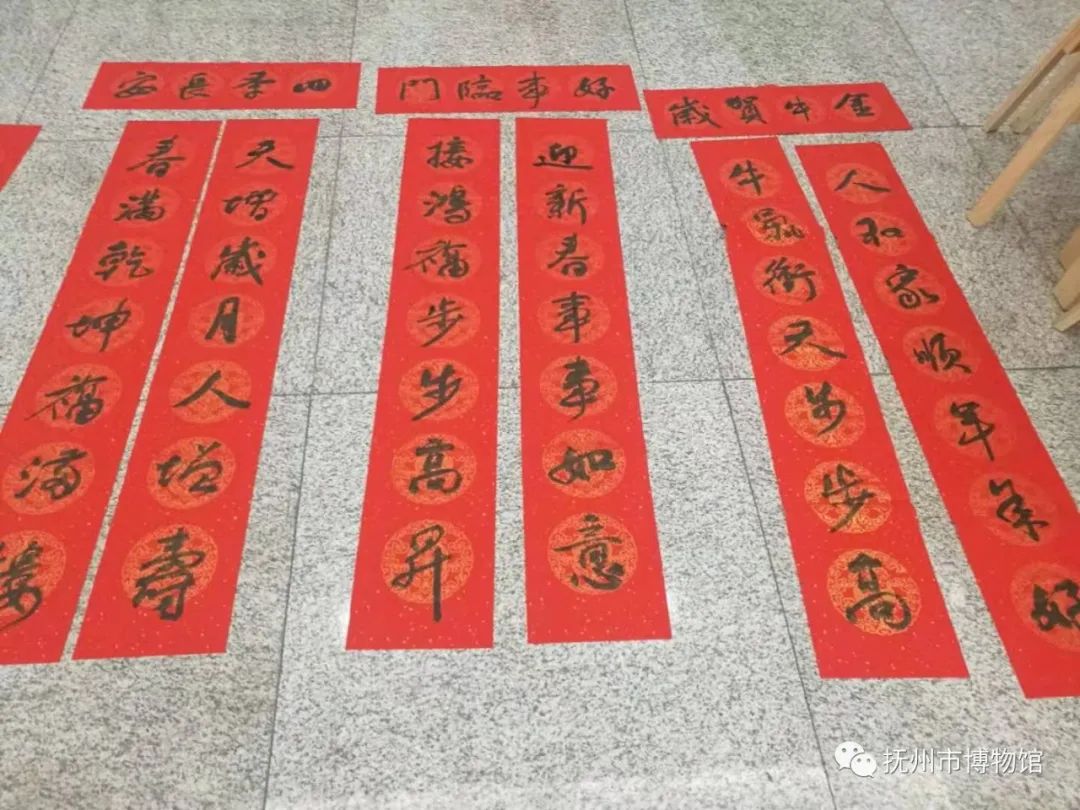 金牛賀歲
人和家順年年好
牛氣衝天步步高
好事臨門
迎新春事事如意
接鴻福步步高昇
四季長安
天增歲月人增壽
春滿乾坤福滿樓
抚州市博物馆